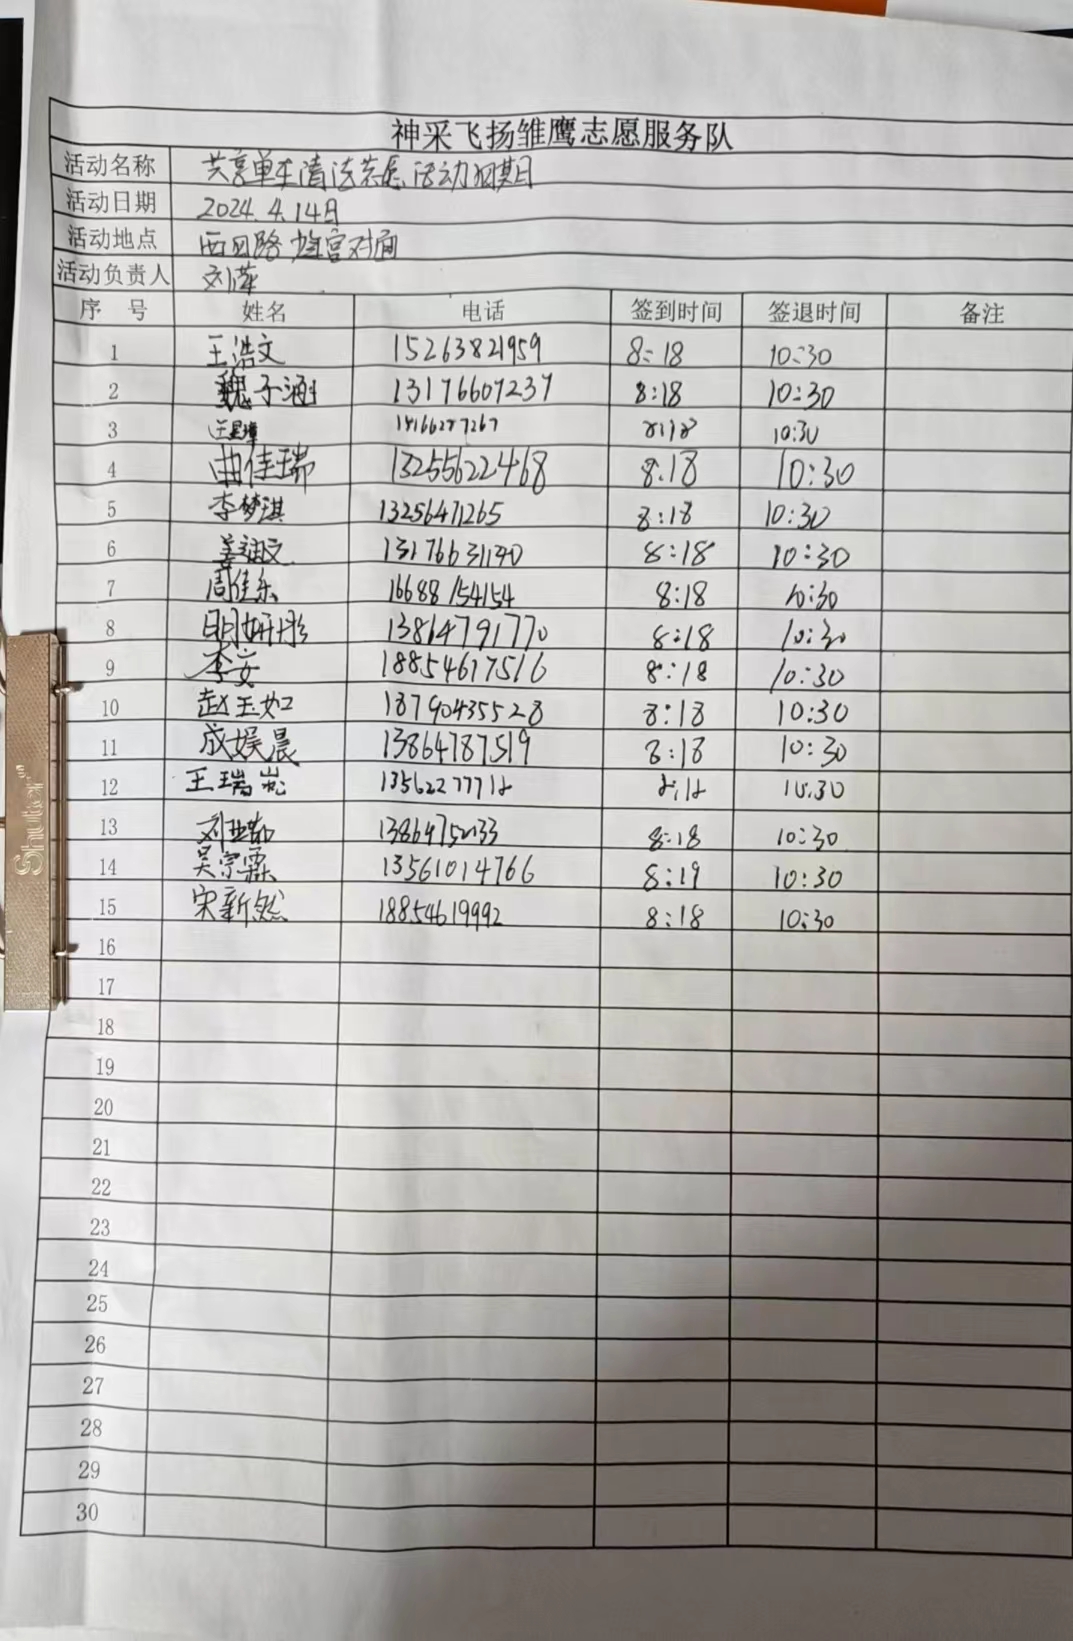 神采飞扬雏鹰志愿服务队
活动名称 共享单车清洁志愿活动
活动日期 2024.4.14日
活动地点 西四路 对面
活动负责人 刘萍
序 号 姓名 电话 签到时间 签退时间 备注
1 王浩文 15263821959 8:18 10:30
2 魏子涵 13176607237 8:18 10:30
3 8:18 10:30
4 曲佳瑞 13255622468 8:18 10:30
5 李梦琪 13256471265 8:18 10:30
6 姜 8:18 10:30
7 周佳乐 16688154154 8:18 10:30
8 明妍彤 13864791770 8:18 10:30
9 李安 18854617516 8:18 10:30
10 赵玉如 18790435528 8:18 10:30
11 成娱晨 13864787519 8:18 10:30
12 王瑞崧 8:18 10:30
13 刘 8:18 10:30
14 吴宗霖 13561014766 8:19 10:30
15 宋新然 18854619992 8:18 10:30
16
17
18
19
20
21
22
23
24
25
26
27
28
29
30
Shuter